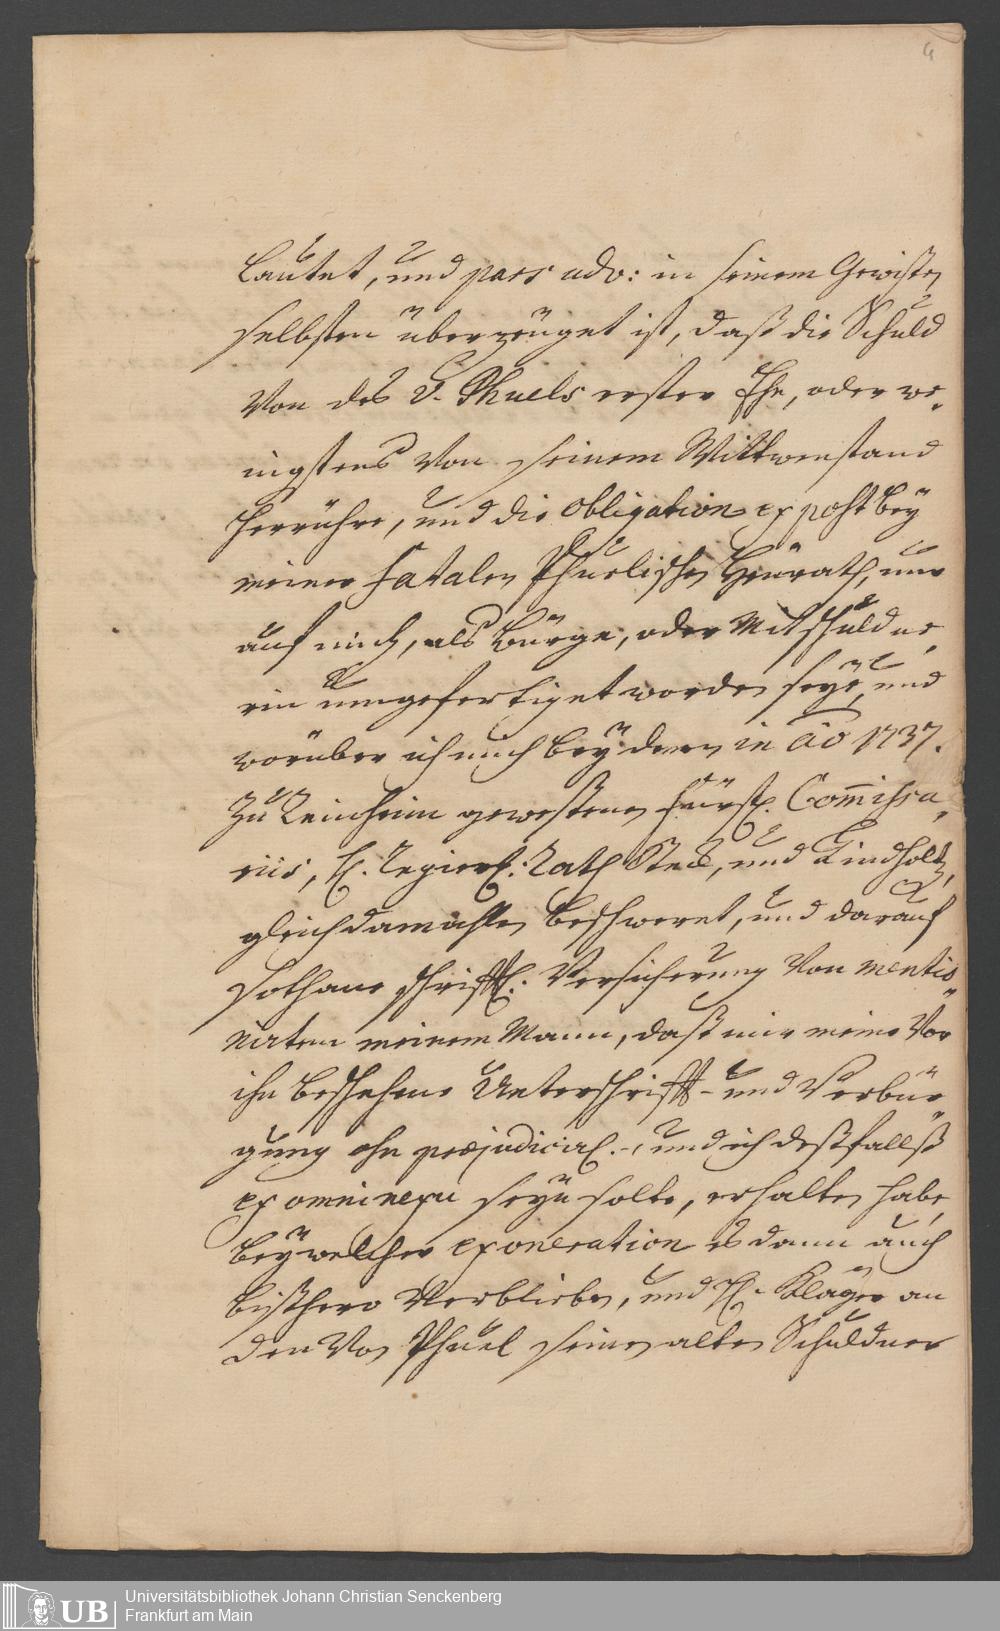 4
lautet, und pars adv: in seinem Gewißen
selbsten überzeüget ist, daß die Schuld
von des v. Phuels erster Ehe, oder we,
nigstens von seinem Wittwenstand
herrühre, und die obligation ex post bey
meiner fatalen Phuelischen Heürath, nur
auf mich, als Bürge, oder Mitschuldne,
rin umgefertiget worden seye, und
worüber ich mich bey denen in aō 1737.
zu Reinheim gewesenen Fürstl. Com̄issa,
riis, H. Regier. Rath und Kindholt,
gleich damahlen beschweret, und darauf
sothane schrifftl. Versicherung von mentio,
nirten meinem Mann, daß mir meine vor
ihn beschehene Unterschrifft- und Verbür,
gung ohn præjudicirl. und ich deßfallß
ex omni nexu seyn solte, erhalten habe,
bey welcher exoneration es dann auch
bißhero verblieben, und H. Kläger an
den von Phuel seinen alten Schuldner
Universitätsbibliothek Johann Christian Senckenberg
Frankfurt am Main
UB